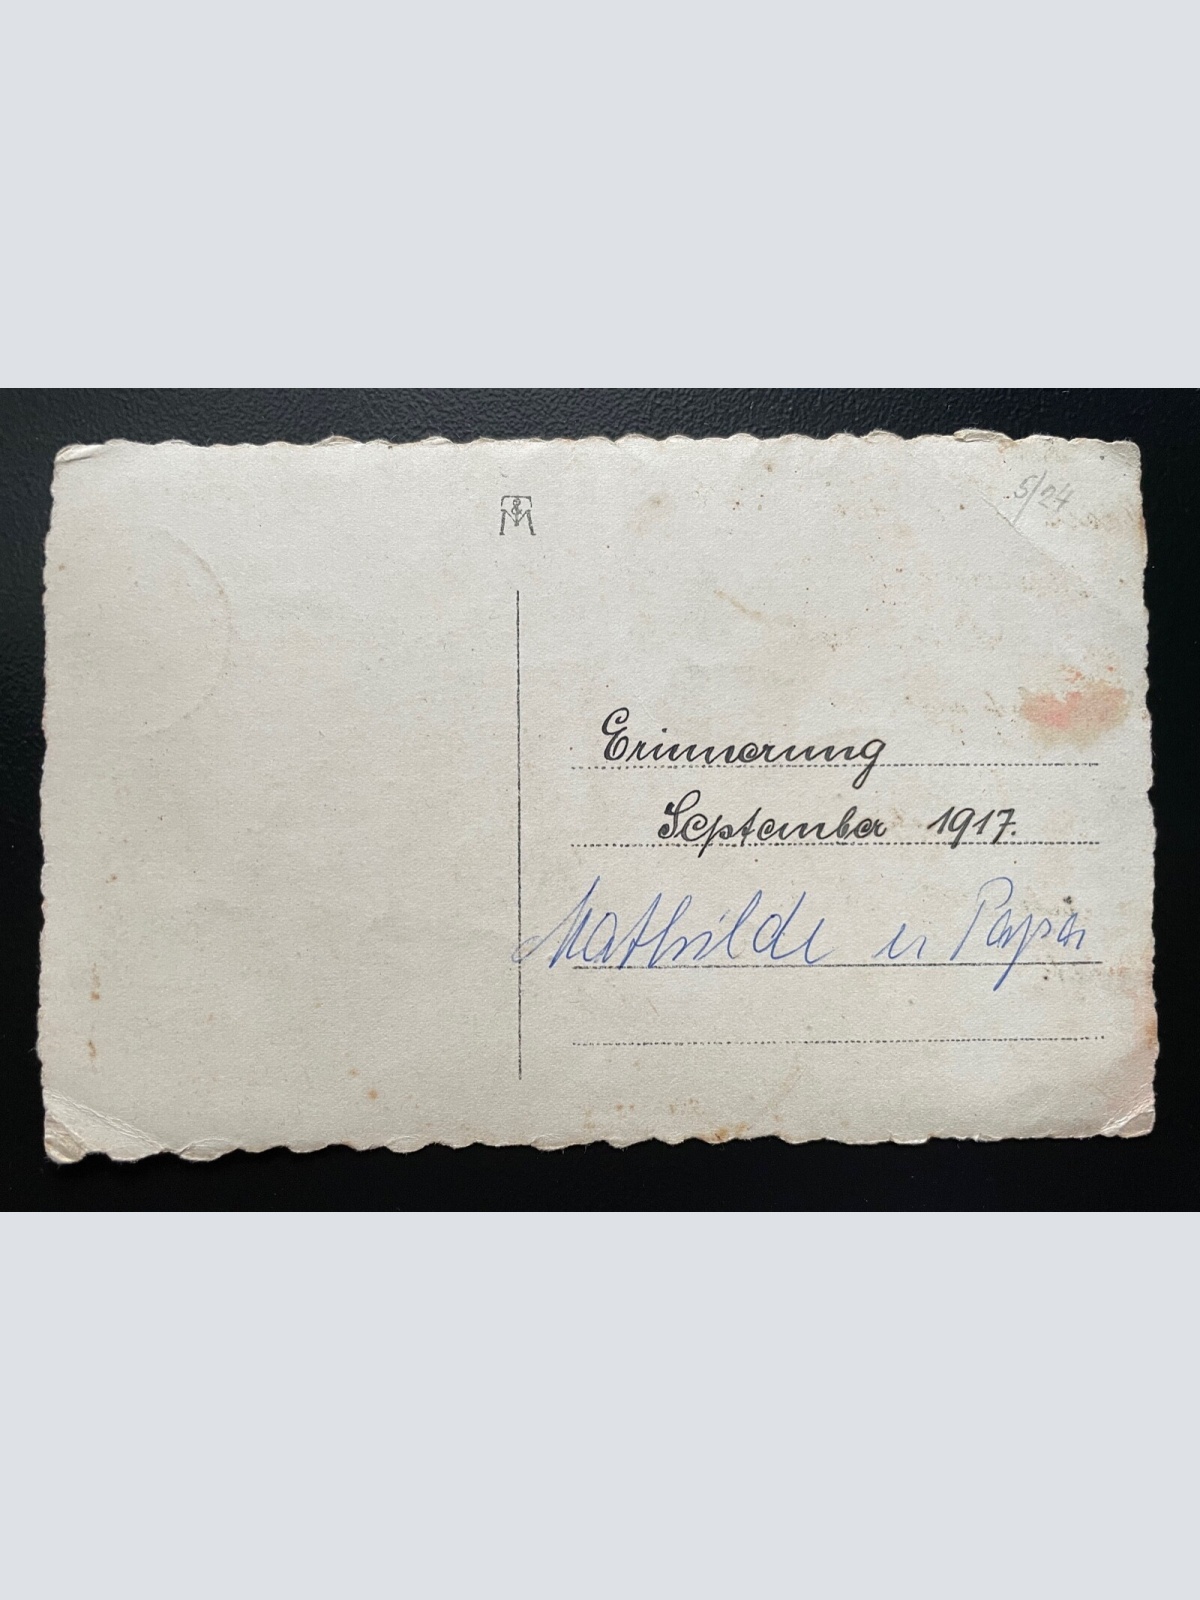 5/24
Erinnerung
September 1917.
Mathilde u Papa